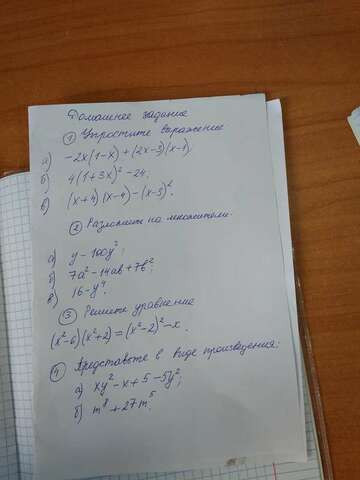 Домашнее задание
① Упростите выражение
а) -2x(1-x)+(2x-3)(x-1).
б) 4(1+3x)²-24;
в) (x+4)(x-4)-(x-3)².
② Разложите на множители.
а) y-100y³;
б) 7a²-14ab+7b²;
в) 16-y⁴.
③ Решите уравнение
(x²-6)(x²+2)=(x²-2)²-x.
4 Представьте в виде произведения:
а) xy²-x+5-5y²;
б) m⁸+27m⁵.